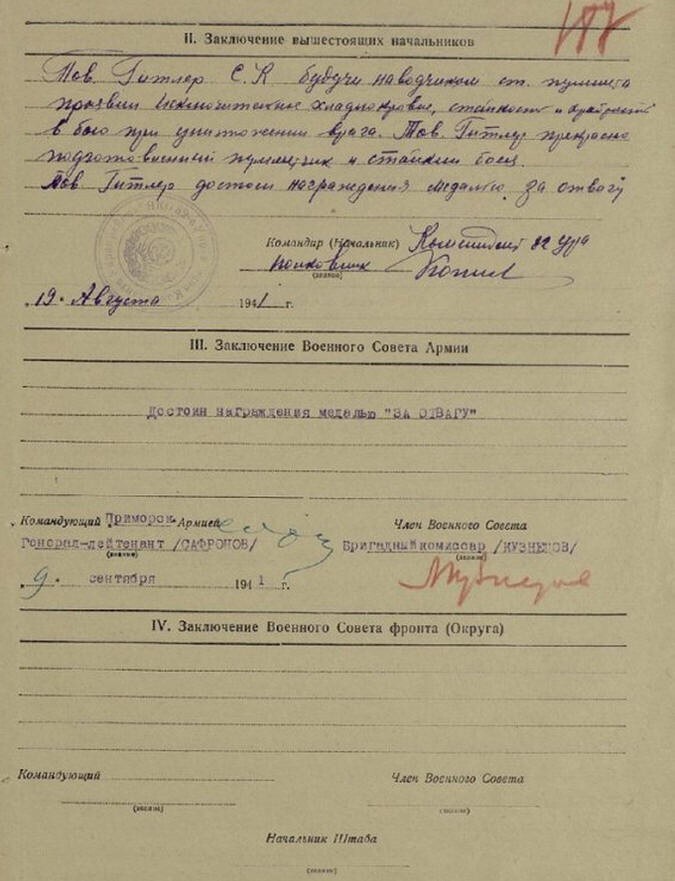 187
II. Заключение вышестоящих начальников
Тов. Гитлер С.К будучи наводчиком ст. пулимета
проявил исключительное хладнокровие, стойкость и храбрость
в бою при уничтожении врага. Тов. Гитлер прекрасно
подготовленный пулеметчик и стойкий боец.
Тов. Гитлер достоин награждения медалью за отвагу
Командир (Начальник) Комендант 82 ура
полковник
(звание)
19. Августа 1941 г.
III. Заключение Военного Совета Армии
Достоин награждения медалью "ЗА ОТВАГУ"
Командующий Приморск. Армией Член Военного Совета
Генерал-лейтенант /САФРОНОВ/ Бригадный комиссар /КУЗНЕЦОВ/
(звание) (звание)
9. сентября 1941 г.
IV. Заключение Военного Совета фронта (Округа)
Командующий Член Военного Совета
(звание) (звание)
Начальник Штаба
(звание)